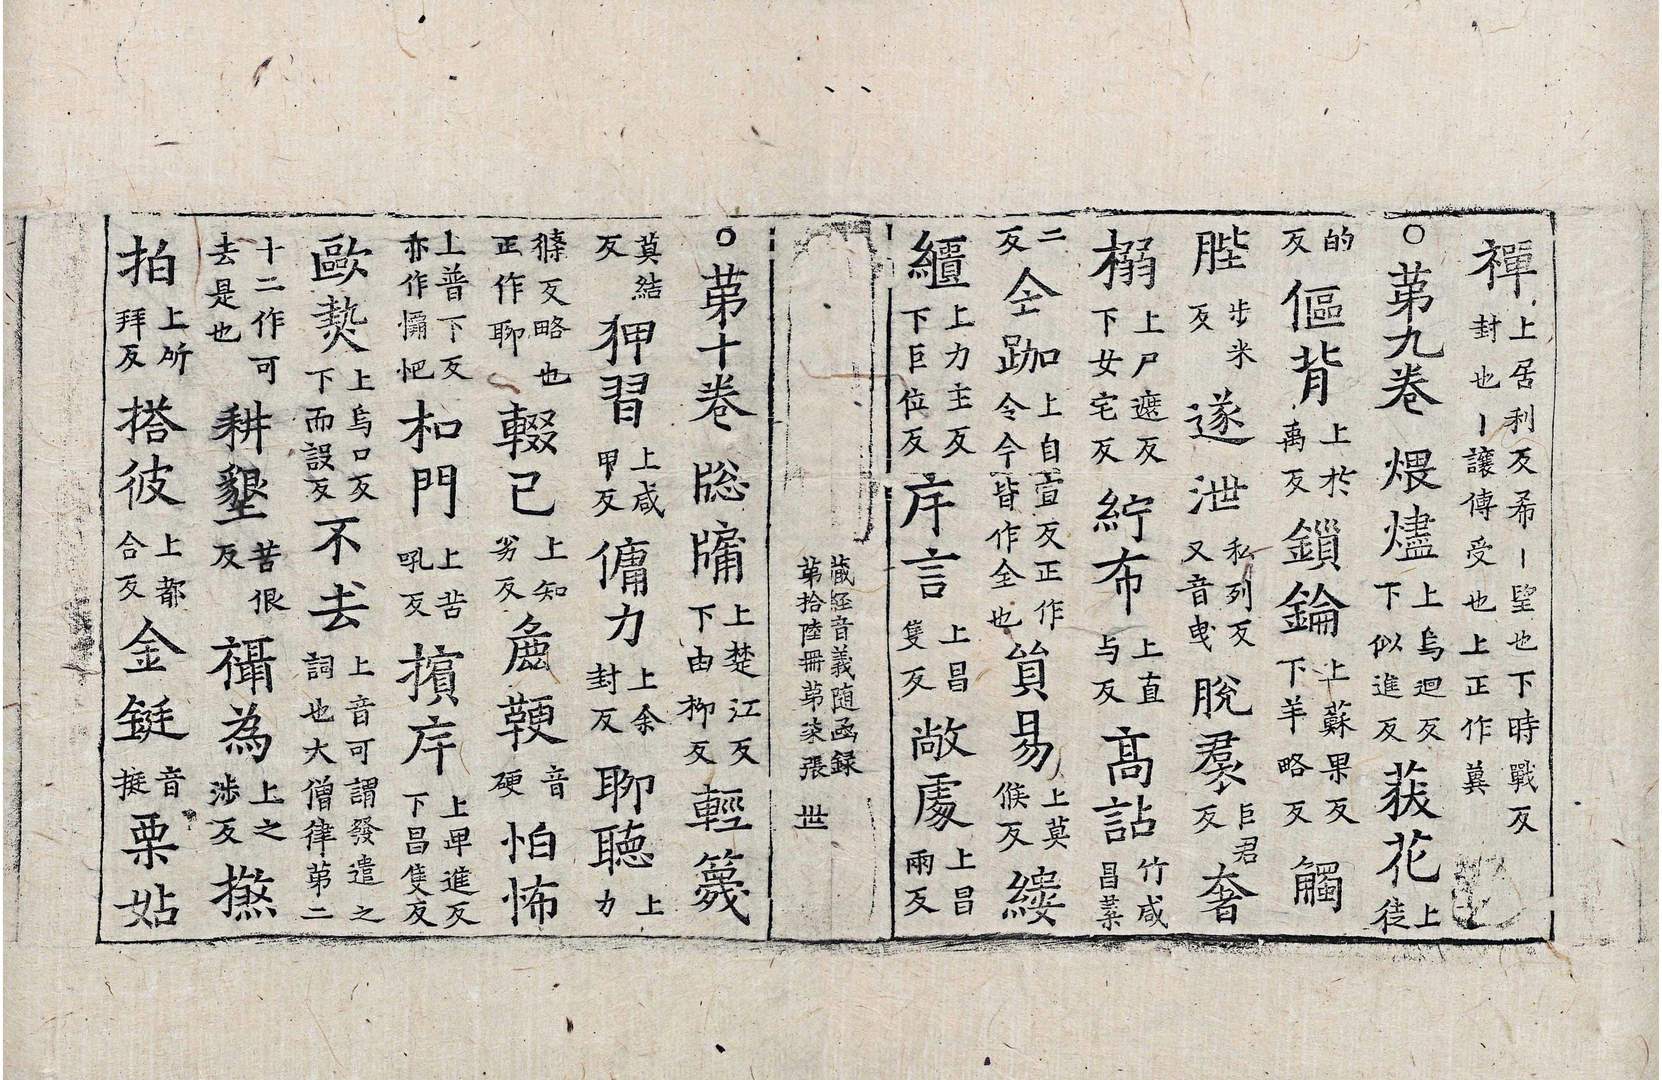 禪上居利反希丨望也下時戰反封也丨讓傳受也上正作冀
○第九卷煨燼上烏迴反下似進反荻花上徒
的反傴背上於禹反鎖鑰上蘇果反下羊略反觸
髀步米反遂泄私列反又音曳脫羣巨君反奢
榻上尸遮反下女宅反紵布上直与反髙詀竹咸昌葉
二反仝跏上自宣反正作令今皆作全也貿易上莫候反緌
繮上力主反下巨位反斥言上昌隻反敞處上昌兩反
藏経音義随函録第拾陸冊第柒張世
○第十卷牎牖上楚江反下由柳反輕篾
莫結反狎習上咸甲反傭力上余封反聊聴上力
條反略也正作聊輟已上知劣反麁鞕音硬怕怖
上普下反亦作懰怕和門上苦吼反擯斥上畀進反下昌隻反
歐爇上烏口反下而設反不去上音可謂發遣之詞也大僧律第二
十二作可去是也耕墾苦佷反襵為上之涉反撚
拍上所拜反搭彼上都合反金鋌音挺栗姑